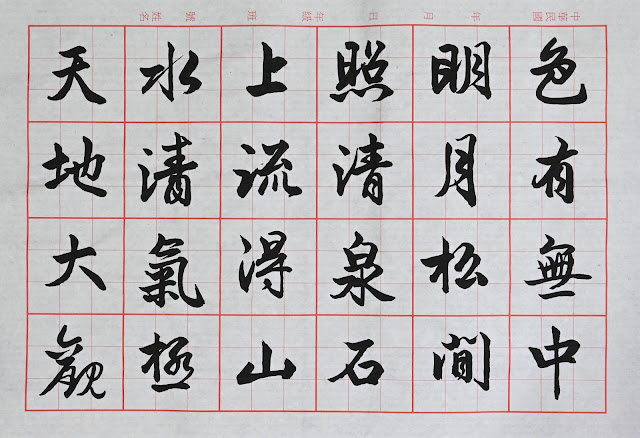 中華民國 年 月 日 年級 班 號 姓名
色有無中
明月松間
照清泉石
上流得山
水清氣極
天地大觀